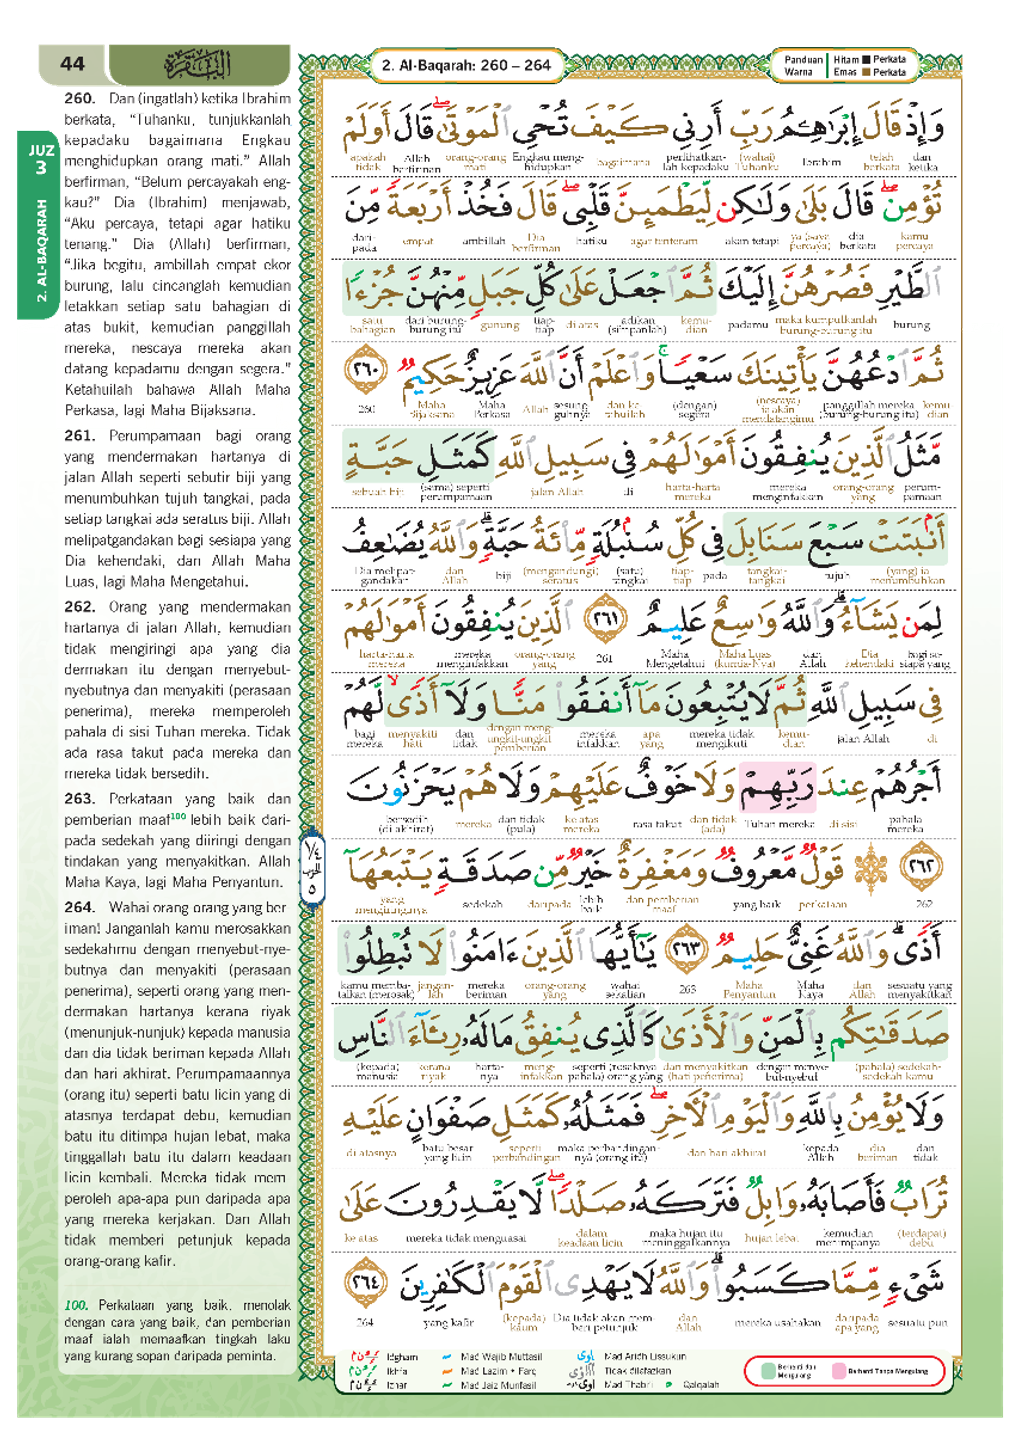 44
البقرة
2. Al-Baqarah: 260 – 264
Panduan Warna
Hitam Perkata
Emas Perkata
JUZ
3
2. AL-BAQARAH
260. Dan (ingatlah) ketika Ibrahim
berkata, “Tuhanku, tunjukkanlah
kepadaku bagaimana Engkau
menghidupkan orang mati.” Allah
berfirman, “Belum percayakah eng-
kau?” Dia (Ibrahim) menjawab,
“Aku percaya, tetapi agar hatiku
tenang.” Dia (Allah) berfirman,
“Jika begitu, ambillah empat ekor
burung, lalu cincanglah kemudian
letakkan setiap satu bahagian di
atas bukit, kemudian panggillah
mereka, nescaya mereka akan
datang kepadamu dengan segera.”
Ketahuilah bahawa Allah Maha
Perkasa, lagi Maha Bijaksana.
261. Perumpamaan bagi orang
yang mendermakan hartanya di
jalan Allah seperti sebutir biji yang
menumbuhkan tujuh tangkai, pada
setiap tangkai ada seratus biji. Allah
melipatgandakan bagi sesiapa yang
Dia kehendaki, dan Allah Maha
Luas, lagi Maha Mengetahui.
262. Orang yang mendermakan
hartanya di jalan Allah, kemudian
tidak mengiringi apa yang dia
dermakan itu dengan menyebut-
nyebutnya dan menyakiti (perasaan
penerima), mereka memperoleh
pahala di sisi Tuhan mereka. Tidak
ada rasa takut pada mereka dan
mereka tidak bersedih.
263. Perkataan yang baik dan
pemberian maaf100 lebih baik dari-
pada sedekah yang diiringi dengan
tindakan yang menyakitkan. Allah
Maha Kaya, lagi Maha Penyantun.
264. Wahai orang orang yang ber
iman! Janganlah kamu merosakkan
sedekahmu dengan menyebut-nye-
butnya dan menyakiti (perasaan
penerima), seperti orang yang men-
dermakan hartanya kerana riyak
(menunjuk-nunjuk) kepada manusia
dan dia tidak beriman kepada Allah
dan hari akhirat. Perumpamaannya
(orang itu) seperti batu licin yang di
atasnya terdapat debu, kemudian
batu itu ditimpa hujan lebat, maka
tinggallah batu itu dalam keadaan
licin kembali. Mereka tidak mem
peroleh apa-apa pun daripada apa
yang mereka kerjakan. Dan Allah
tidak memberi petunjuk kepada
orang-orang kafir.
100. Perkataan yang baik, menolak
dengan cara yang baik, dan pemberian
maaf ialah memaafkan tingkah laku
yang kurang sopan daripada peminta.
وَإِذْ قَالَ إِبْرَٰهِـۧمُ رَبِّ أَرِنِى كَيْفَ تُحْىِ ٱلْمَوْتَىٰ ۖ قَالَ أَوَلَمْ
dan ketika telah berkata Ibrahim (wahai) Tuhanku perlihatkan-lah kepadaku bagaimana Engkau meng-hidupkan orang-orang mati Allah berfirman apakah tidak
تُؤْمِن ۖ قَالَ بَلَىٰ وَلَـٰكِن لِّيَطْمَئِنَّ قَلْبِى ۖ قَالَ فَخُذْ أَرْبَعَةً مِّنَ
kamu percaya dia berkata ya (saya percaya) akan tetapi agar tenteram hatiku Dia berfirman ambillah empat dari-pada
ٱلطَّيْرِ فَصُرْهُنَّ إِلَيْكَ ثُمَّ ٱجْعَلْ عَلَىٰ كُلِّ جَبَلٍ مِّنْهُنَّ جُزْءًا
burung maka kumpulkanlah burung-burung itu padamu kemu-dian adikan (simpanlah) di atas tiap-tiap gunung dari burung-burung itu satu bahagian
ثُمَّ ٱدْعُهُنَّ يَأْتِينَكَ سَعْيًا ۚ وَٱعْلَمْ أَنَّ ٱللَّهَ عَزِيزٌ حَكِيمٌ ٢٦٠
kemu-dian panggillah mereka (burung-burung itu) (nescaya) ia akan mendatangimu (dengan) segera dan ke-tahuilah sesung-guhnya Allah Maha Perkasa Maha Bijaksana 260
مَّثَلُ ٱلَّذِينَ يُنفِقُونَ أَمْوَٰلَهُمْ فِى سَبِيلِ ٱللَّهِ كَمَثَلِ حَبَّةٍ
perum-pamaan orang-orang yang mereka menginfakkan harta-harta mereka di jalan Allah (sama) seperti perumpamaan sebuah biji
أَنۢبَتَتْ سَبْعَ سَنَابِلَ فِى كُلِّ سُنۢبُلَةٍ مِّا۟ئَةُ حَبَّةٍ ۗ وَٱللَّهُ يُضَـٰعِفُ
(yang) ia menumbuhkan tujuh tangkai-tangkai pada tiap-tiap (satu) tangkai (mengandungi) seratus biji dan Allah Dia melipat-gandakan
لِمَن يَشَآءُ ۗ وَٱللَّهُ وَٰسِعٌ عَلِيمٌ ٢٦١ ٱلَّذِينَ يُنفِقُونَ أَمْوَٰلَهُمْ
bagi se-siapa yang Dia kehendaki dan Allah Maha Luas (kurnia-Nya) Maha Mengetahui 261 orang-orang yang mereka menginfakkan harta-harta mereka
فِى سَبِيلِ ٱللَّهِ ثُمَّ لَا يُتْبِعُونَ مَآ أَنفَقُوا۟ مَنًّا وَلَآ أَذًى ۙ لَّهُمْ
di jalan Allah kemu-dian mereka tidak mengikuti apa yang mereka infakkan dengan meng-ungkit-ungkit pemberian dan tidak menyakiti hati bagi mereka
أَجْرُهُمْ عِندَ رَبِّهِمْ وَلَا خَوْفٌ عَلَيْهِمْ وَلَا هُمْ يَحْزَنُونَ
pahala mereka di sisi Tuhan mereka dan tidak (ada) rasa takut ke atas mereka dan tidak (pula) mereka bersedih (di akhirat)
٢٦٢ قَوْلٌ مَّعْرُوفٌ وَمَغْفِرَةٌ خَيْرٌ مِّن صَدَقَةٍ يَتْبَعُهَآ
262 perkataan yang baik dan pemberian maaf lebih baik daripada sedekah yang mengiringinya
١/٤ الحزب ٥
أَذًى ۗ وَٱللَّهُ غَنِىٌّ حَلِيمٌ ٢٦٣ يَـٰٓأَيُّهَا ٱلَّذِينَ ءَامَنُوا۟ لَا تُبْطِلُوا۟
sesuatu yang menyakitkan dan Allah Maha Kaya Maha Penyantun 263 wahai sekalian orang-orang yang mereka beriman jangan-lah kamu memba-talkan (merosak)
صَدَقَـٰتِكُم بِٱلْمَنِّ وَٱلْأَذَىٰ كَٱلَّذِى يُنفِقُ مَالَهُۥ رِئَآءَ ٱلنَّاسِ
(pahala) sedekah-sedekah kamu dengan menye-but-nyebut dan menyakitkan (hati penerima) seperti (rosaknya pahala) orang yang meng-infakkan harta-nya kerana riyak (kepada) manusia
وَلَا يُؤْمِنُ بِٱللَّهِ وَٱلْيَوْمِ ٱلْـَٔاخِرِ ۖ فَمَثَلُهُۥ كَمَثَلِ صَفْوَانٍ عَلَيْهِ
dan tidak dia beriman kepada Allah dan hari akhirat maka perbandingan-nya (orang itu) seperti perbandingan batu besar yang licin di atasnya
تُرَابٌ فَأَصَابَهُۥ وَابِلٌ فَتَرَكَهُۥ صَلْدًا ۖ لَّا يَقْدِرُونَ عَلَىٰ
(terdapat) debu kemudian menimpanya hujan lebat maka hujan itu meninggalkannya dalam keadaan licin mereka tidak menguasai ke atas
شَىْءٍ مِّمَّا كَسَبُوا۟ ۗ وَٱللَّهُ لَا يَهْدِى ٱلْقَوْمَ ٱلْكَـٰفِرِينَ ٢٦٤
sesuatu pun daripada apa yang mereka usahakan dan Allah Dia tidak akan mem beri petunjuk (kepada) kaum yang kafir 264
Idgham Mad Wajib Muttasil Mad Aridh Lissukun
Ikhfa Mad Lazim • Farq Tidak dilafazkan
Izhar Mad Jaiz Munfasil Mad Thabi'i Qalqalah
Berhenti dan Mengulang
Berhenti Tanpa Mengulang